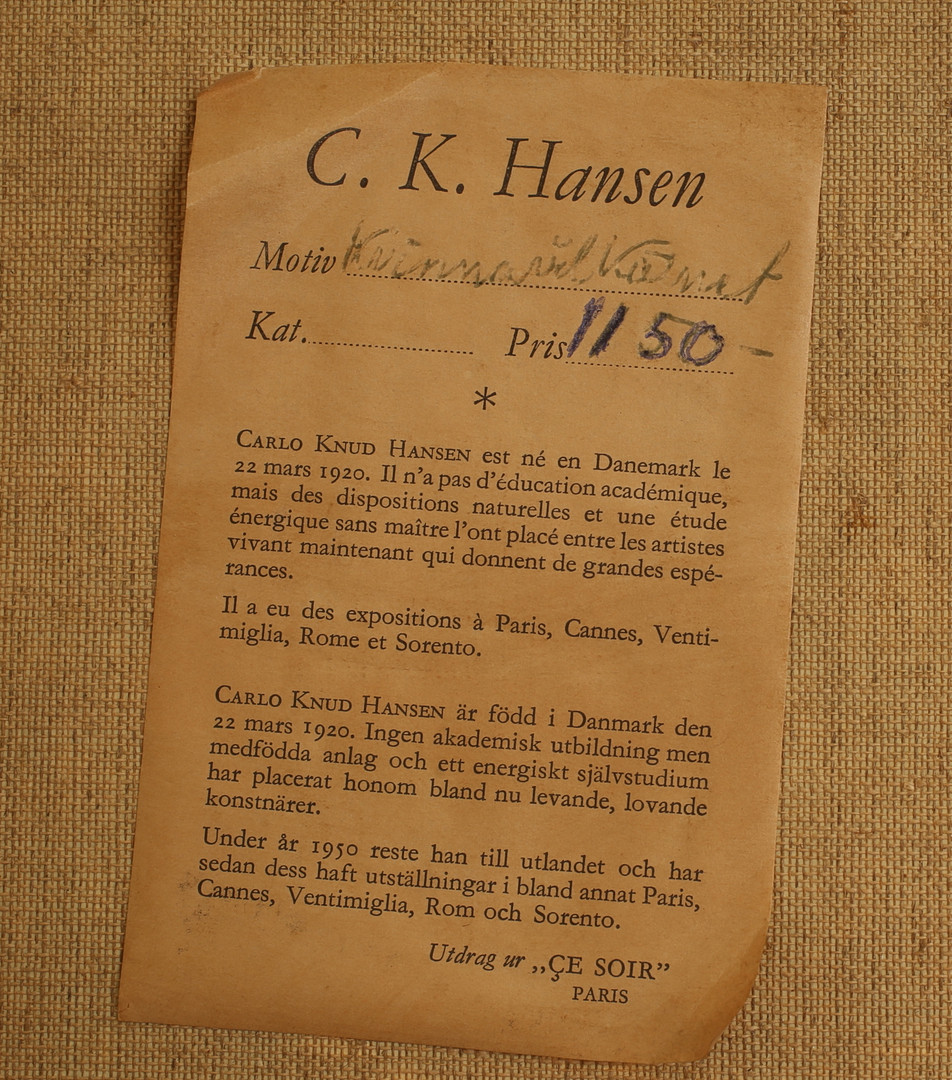 C. K. Hansen
Motiv
Kat. Pris 1150 –
*
CARLO KNUD HANSEN est né en Danemark le
22 mars 1920. Il n'a pas d'éducation académique,
mais des dispositions naturelles et une étude
énergique sans maître l'ont placé entre les artistes
vivant maintenant qui donnent de grandes espé-
rances.
Il a eu des expositions à Paris, Cannes, Venti-
miglia, Rome et Sorento.
CARLO KNUD HANSEN är född i Danmark den
22 mars 1920. Ingen akademisk utbildning men
medfödda anlag och ett energiskt självstudium
har placerat honom bland nu levande, lovande
konstnärer.
Under år 1950 reste han till utlandet och har
sedan dess haft utställningar i bland annat Paris,
Cannes, Ventimiglia, Rom och Sorento.
Utdrag ur „ÇE SOIR”
PARIS